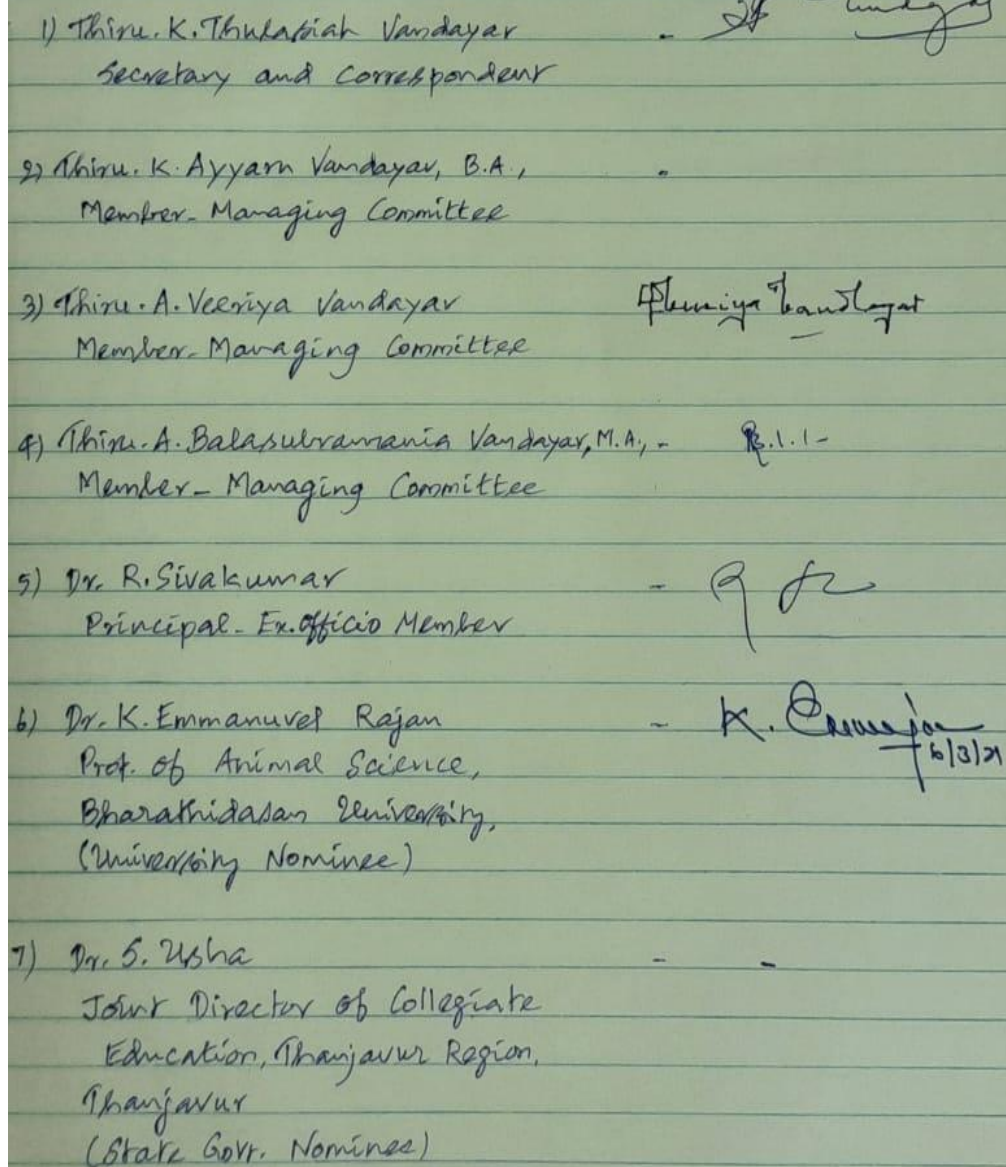 1) Thiru. K. Thulasiah Vandayar -
Secretary and Correspondent
2) Thiru. K. Ayyarn Vandayar, B.A., -
Member - Managing Committee
3) Thiru. A. Veeriya Vandayar
Member - Managing Committee
4) Thiru. A. Balasubramania Vandayar, M.A., -
Member - Managing Committee
5) Dr. R. Sivakumar -
Principal - Ex.officio Member
6) Dr. K. Emmanuvel Rajan - K.
6/3/21
Prof. of Animal Science,
Bharathidasan University,
(University Nominee)
7) Dr. S. Usha - -
Joint Director of Collegiate
Education, Thanjavur Region,
Thanjavur
(State Govt. Nominee)